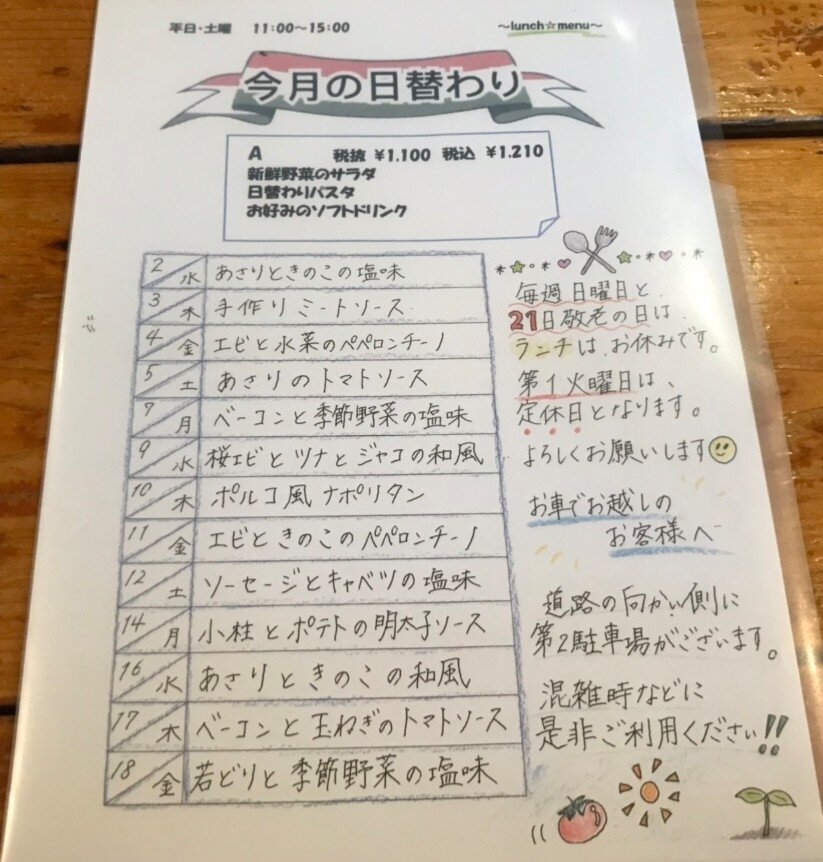 平日・土曜 11:00～15:00
～lunch☆menu～
今月の日替わり
A 税抜 ¥1.100 税込 ¥1.210
新鮮野菜のサラダ
日替わりパスタ
お好みのソフトドリンク
2/水 あさりときのこの塩味
3/木 手作りミートソース
4/金 エビと水菜のペペロンチーノ
5/土 あさりのトマトソース
7/月 ベーコンと季節野菜の塩味
9/水 桜エビとツナとジャコの和風
10/木 ポルコ風ナポリタン
11/金 エビときのこのペペロンチーノ
12/土 ソーセージとキャベツの塩味
14/月 小柱とポテトの明太子ソース
16/水 あさりときのこの和風
17/木 ベーコンと玉ねぎのトマトソース
18/金 若どりと季節野菜の塩味
毎週日曜日と、
21日敬老の日は、
ランチは、お休みです。
第1火曜日は、
定休日となります。
よろしくお願いします
お車でお越しの
お客様へ
道路の向かい側に
第2駐車場がございます。
混雑時などに
是非ご利用ください!!